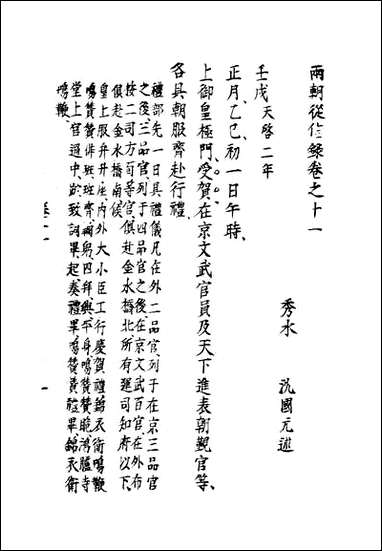 兩朝從信錄卷之十一
秀水　沈國元述
壬戌天啓二年
正月、乙巳、初一日午時、
上御皇極門、受賀、在京文武官員及天下進表朝覲官等、
各具朝服齊赴行禮、
禮部先一日具禮儀凡在外二品官、列于在京三品官
之後、三品官列于四品官之後、在京文武百官、在外布
按二司方面等官、俱赴金水橋北、所有運司知府以下、
俱赴金水橋南候、
皇上服弁升座、內外大小臣工行慶賀禮、錦衣衛鳴鞭
鳴贊贊排班、班齊、鞠躬、四拜、興、平身、鳴贊贊跪、鴻臚寺
堂上官道中、致詞畢、起、奏禮畢、鳴贊贊禮畢、錦衣衛
鳴鞭、
卷十一
一